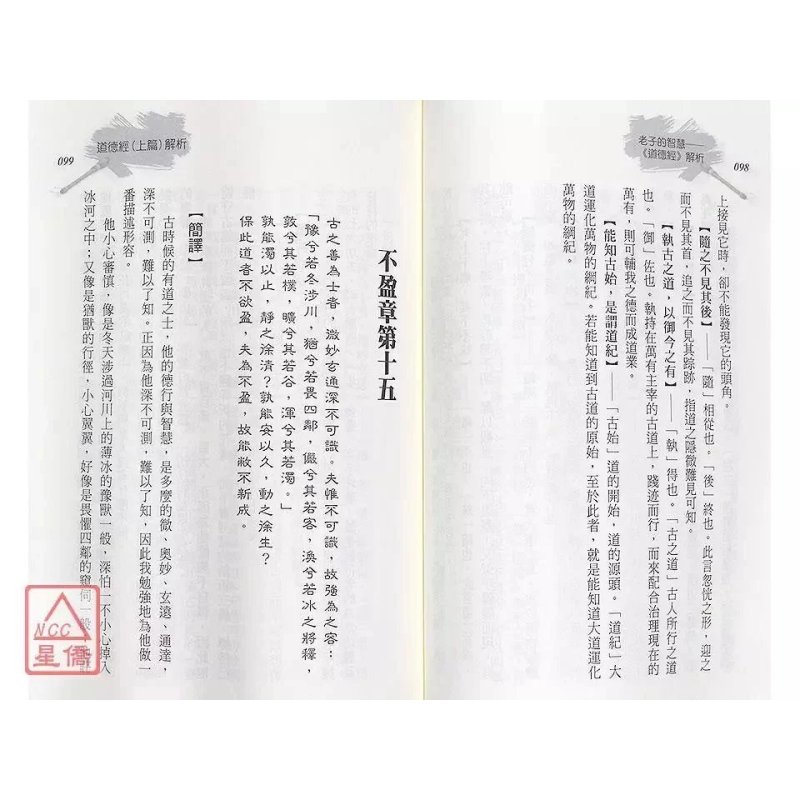 老子的智慧——
《道德經》解析
098
上接見它時，卻不能發現它的頭角。
【隨之不見其後】——「隨」相從也。「後」終也。此言忽恍之形，迎之
而不見其首，追之而不見其踪跡，指道之隱微難見可知。
【執古之道，以御今之有】——「執」得也。「古之道」古人所行之道
也。「御」佐也。執持在萬有主宰的古道上，踐迹而行，而來配合治理現在的
萬有，則可輔我之德而成道業。
【能知古始，是謂道紀】——「古始」道的開始，道的源頭。「道紀」大
道運化萬物的綱紀。若能知道到古道的原始，至於此者，就是能知道大道運化
萬物的綱紀。
道德經(上篇)解析
099
不盈章第十五
古之善為士者，微妙玄通深不可識。夫惟不可識，故強為之容：
「豫兮若冬涉川，猶兮若畏四鄰，儼兮其若客，渙兮若冰之將釋，
敦兮其若樸，曠兮其若谷，渾兮其若濁。」
孰能濁以止，靜之徐清？孰能安以久，動之徐生？
保此道者不欲盈，夫為不盈，故能敝不新成。
【簡譯】
古時候的有道之士，他的德行與智慧，是多麼的微、奧妙、玄遠、通達，
深不可測，難以了知。正因為他深不可測，難以了知，因此我勉強地為他做一
番描述形容。
他小心審慎，像是冬天涉過河川上的薄冰的豫獸一般，深怕一不小心掉入
冰河之中；又像是猶獸的行徑，小心翼翼，好像是畏懼四鄰的窺伺一般
NCC
星僑